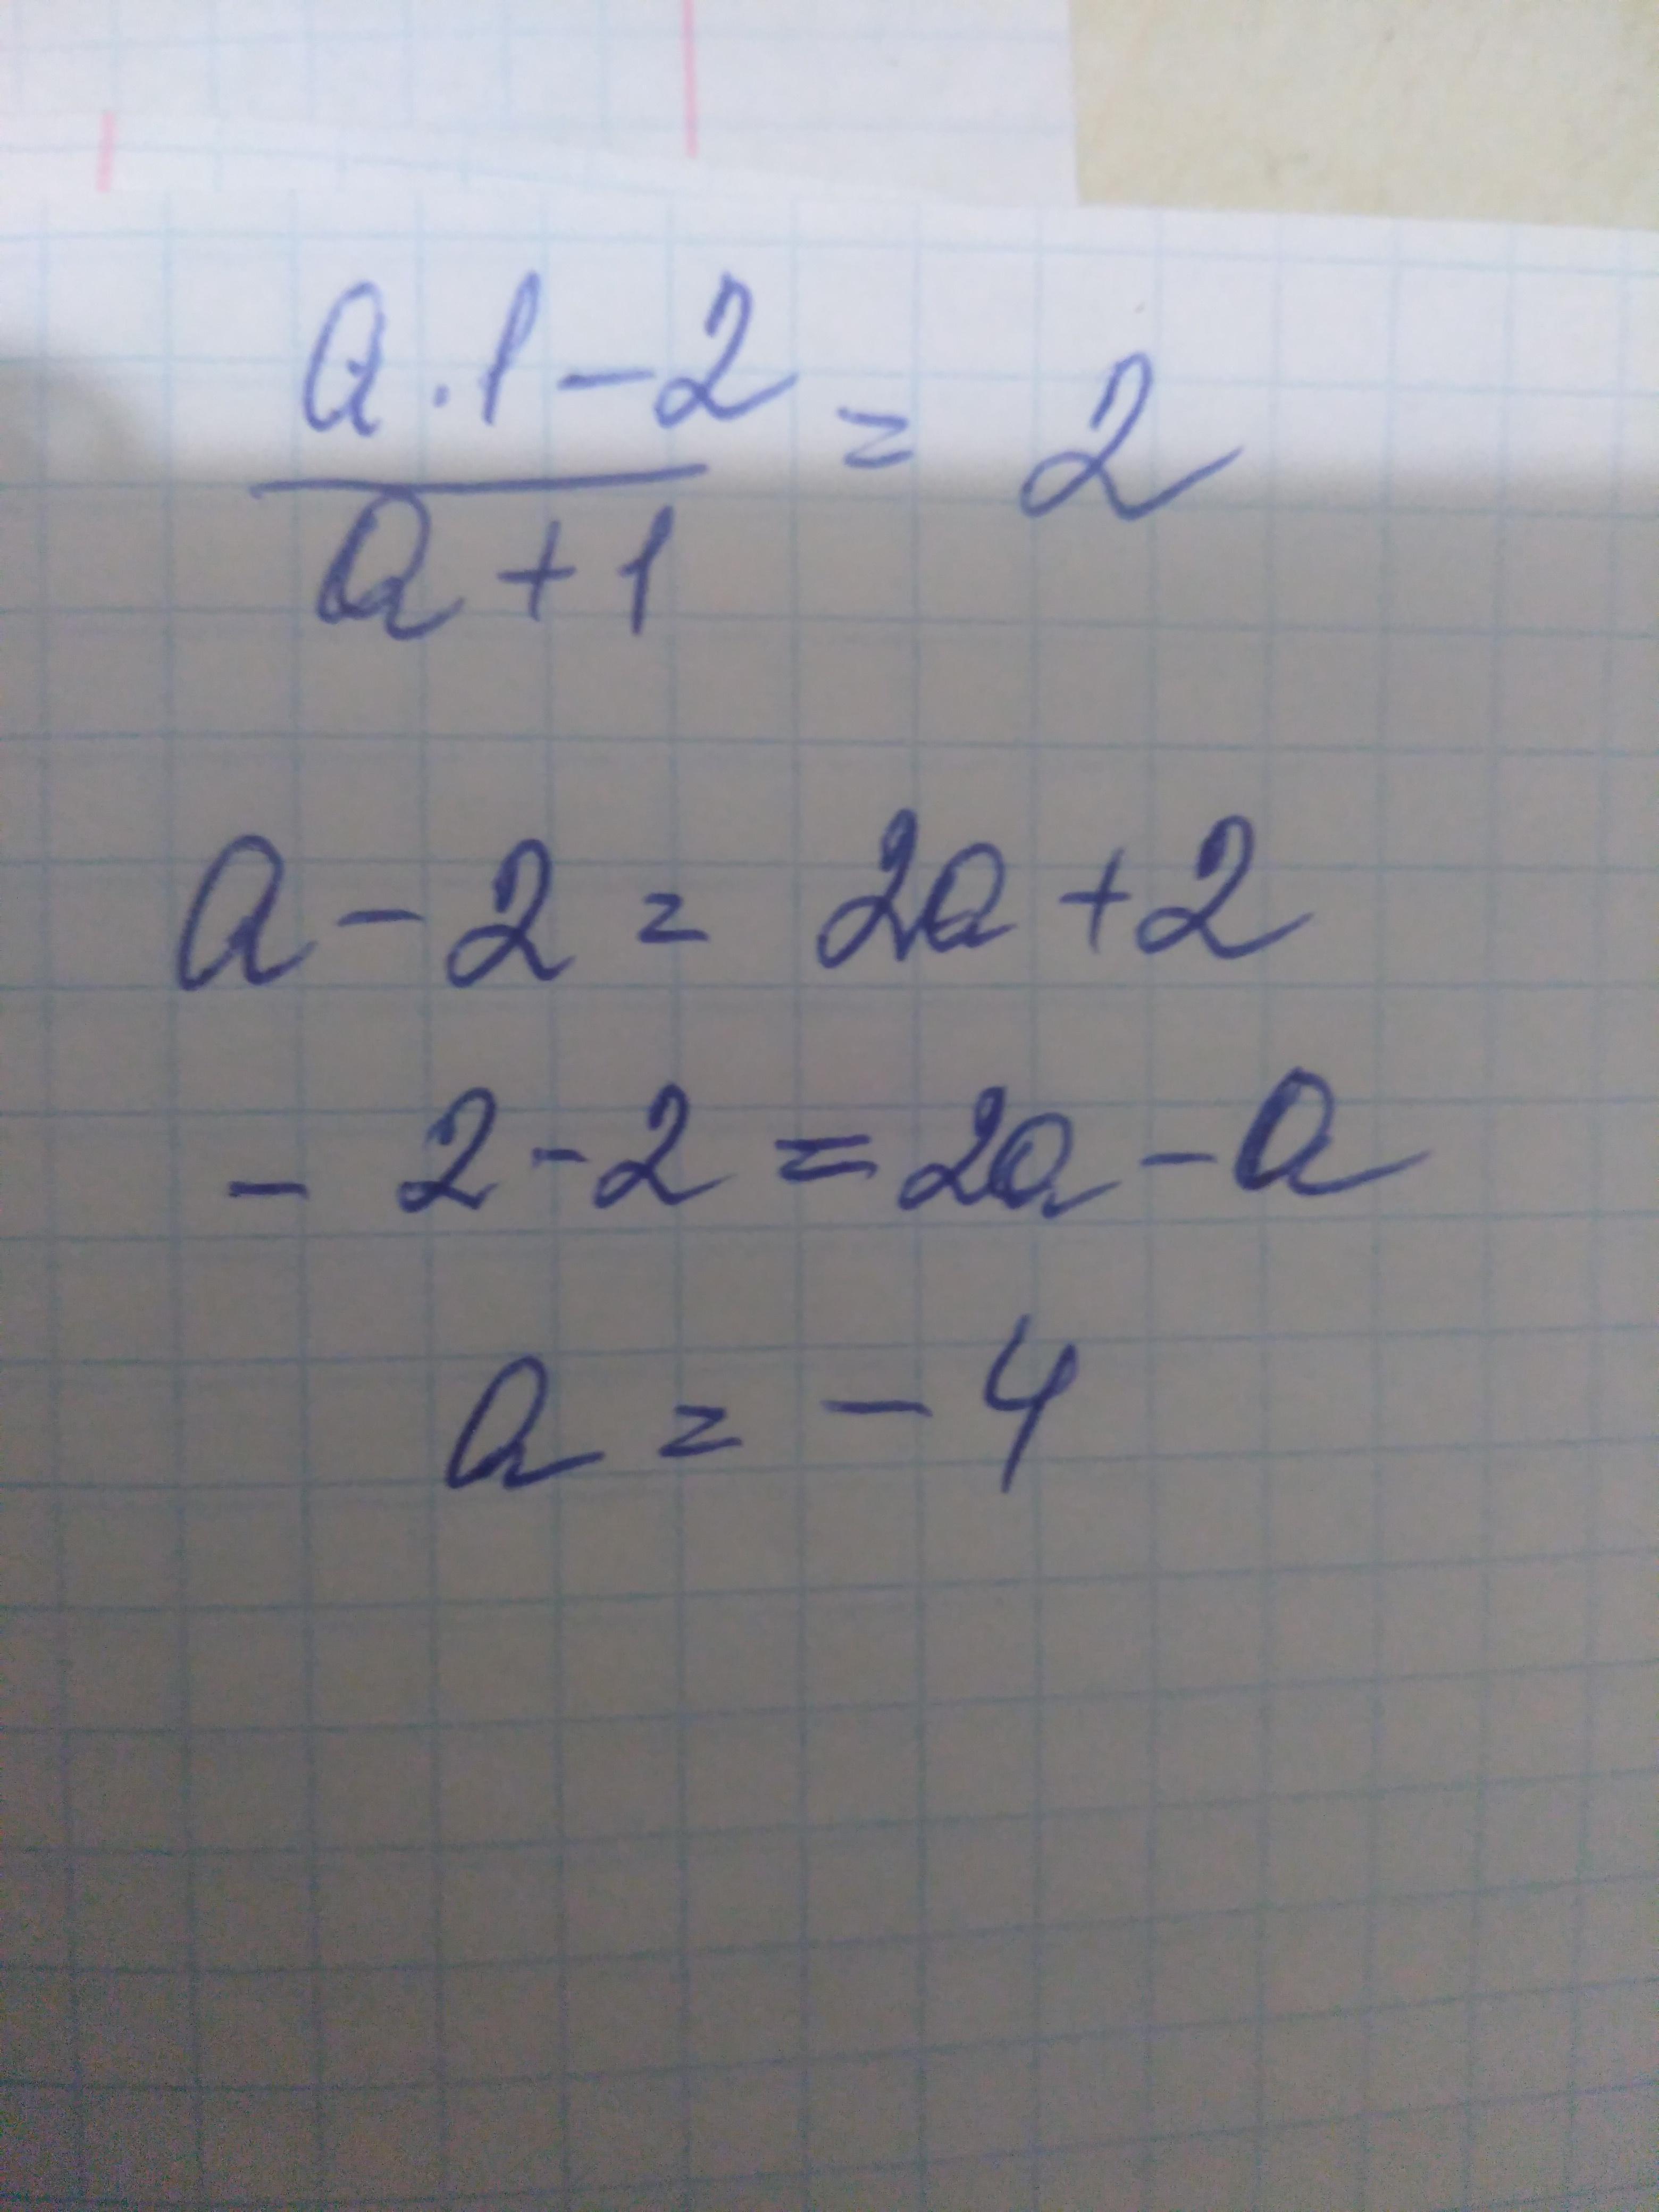 a · 1 - 2 / a + 1 = 2
a - 2 = 2a + 2
- 2 - 2 = 2a - a
a = - 4